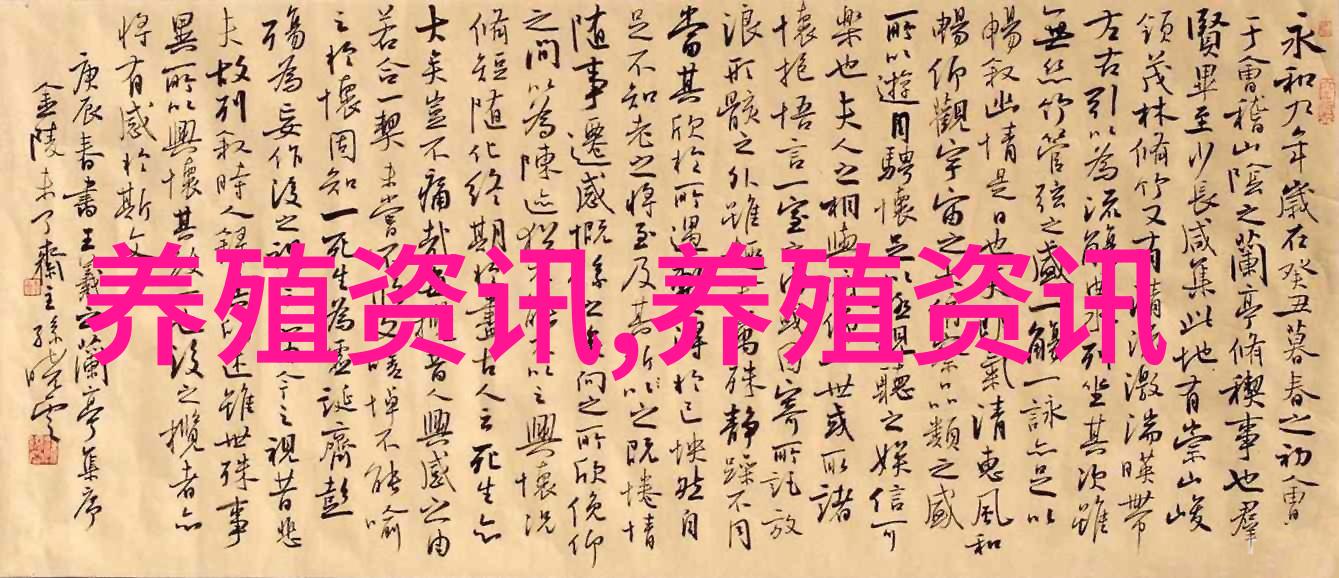 永和九年歲在癸丑暮春之初會
于會稽山陰之蘭亭脩稧事也羣
賢畢至少長咸集此地有崇山峻
領茂林脩竹又有清流激湍暎帶
左右引以為流觴曲水列坐其次雖
無絲竹管弦之盛一觴一詠亦足以
暢叙幽情是日也天朗氣清惠風和
暢仰觀宇宙之大品類之盛
所以遊目騁懷足以極視聽之娛信可
樂也夫人之相與俯世或取諸
懷抱悟言一室之內或因寄所託放
浪形骸之外雖趣萬殊靜躁不同
當其欣於所遇暫得於己怏然自
足不知老之將至及其所之既惓情
隨事遷感慨係之矣向之所欣俛仰
之間以為陳迹猶不以之興懷況
脩短隨化終期於盡古人云死生亦
大矣豈不痛哉昔人興感之由
若合一契未嘗不文嗟悼不能喻
之於懷固知一死生為虛誕齊彭
殤為妄作後之視今之視昔悲
夫故列叙時人錄其述雖世殊事
異所以興懷其致後之攬者亦
將有感於斯文
庚辰春書王羲之蘭亭集序
金陵未了齋主孫曉雲
养殖资讯,养殖资讯